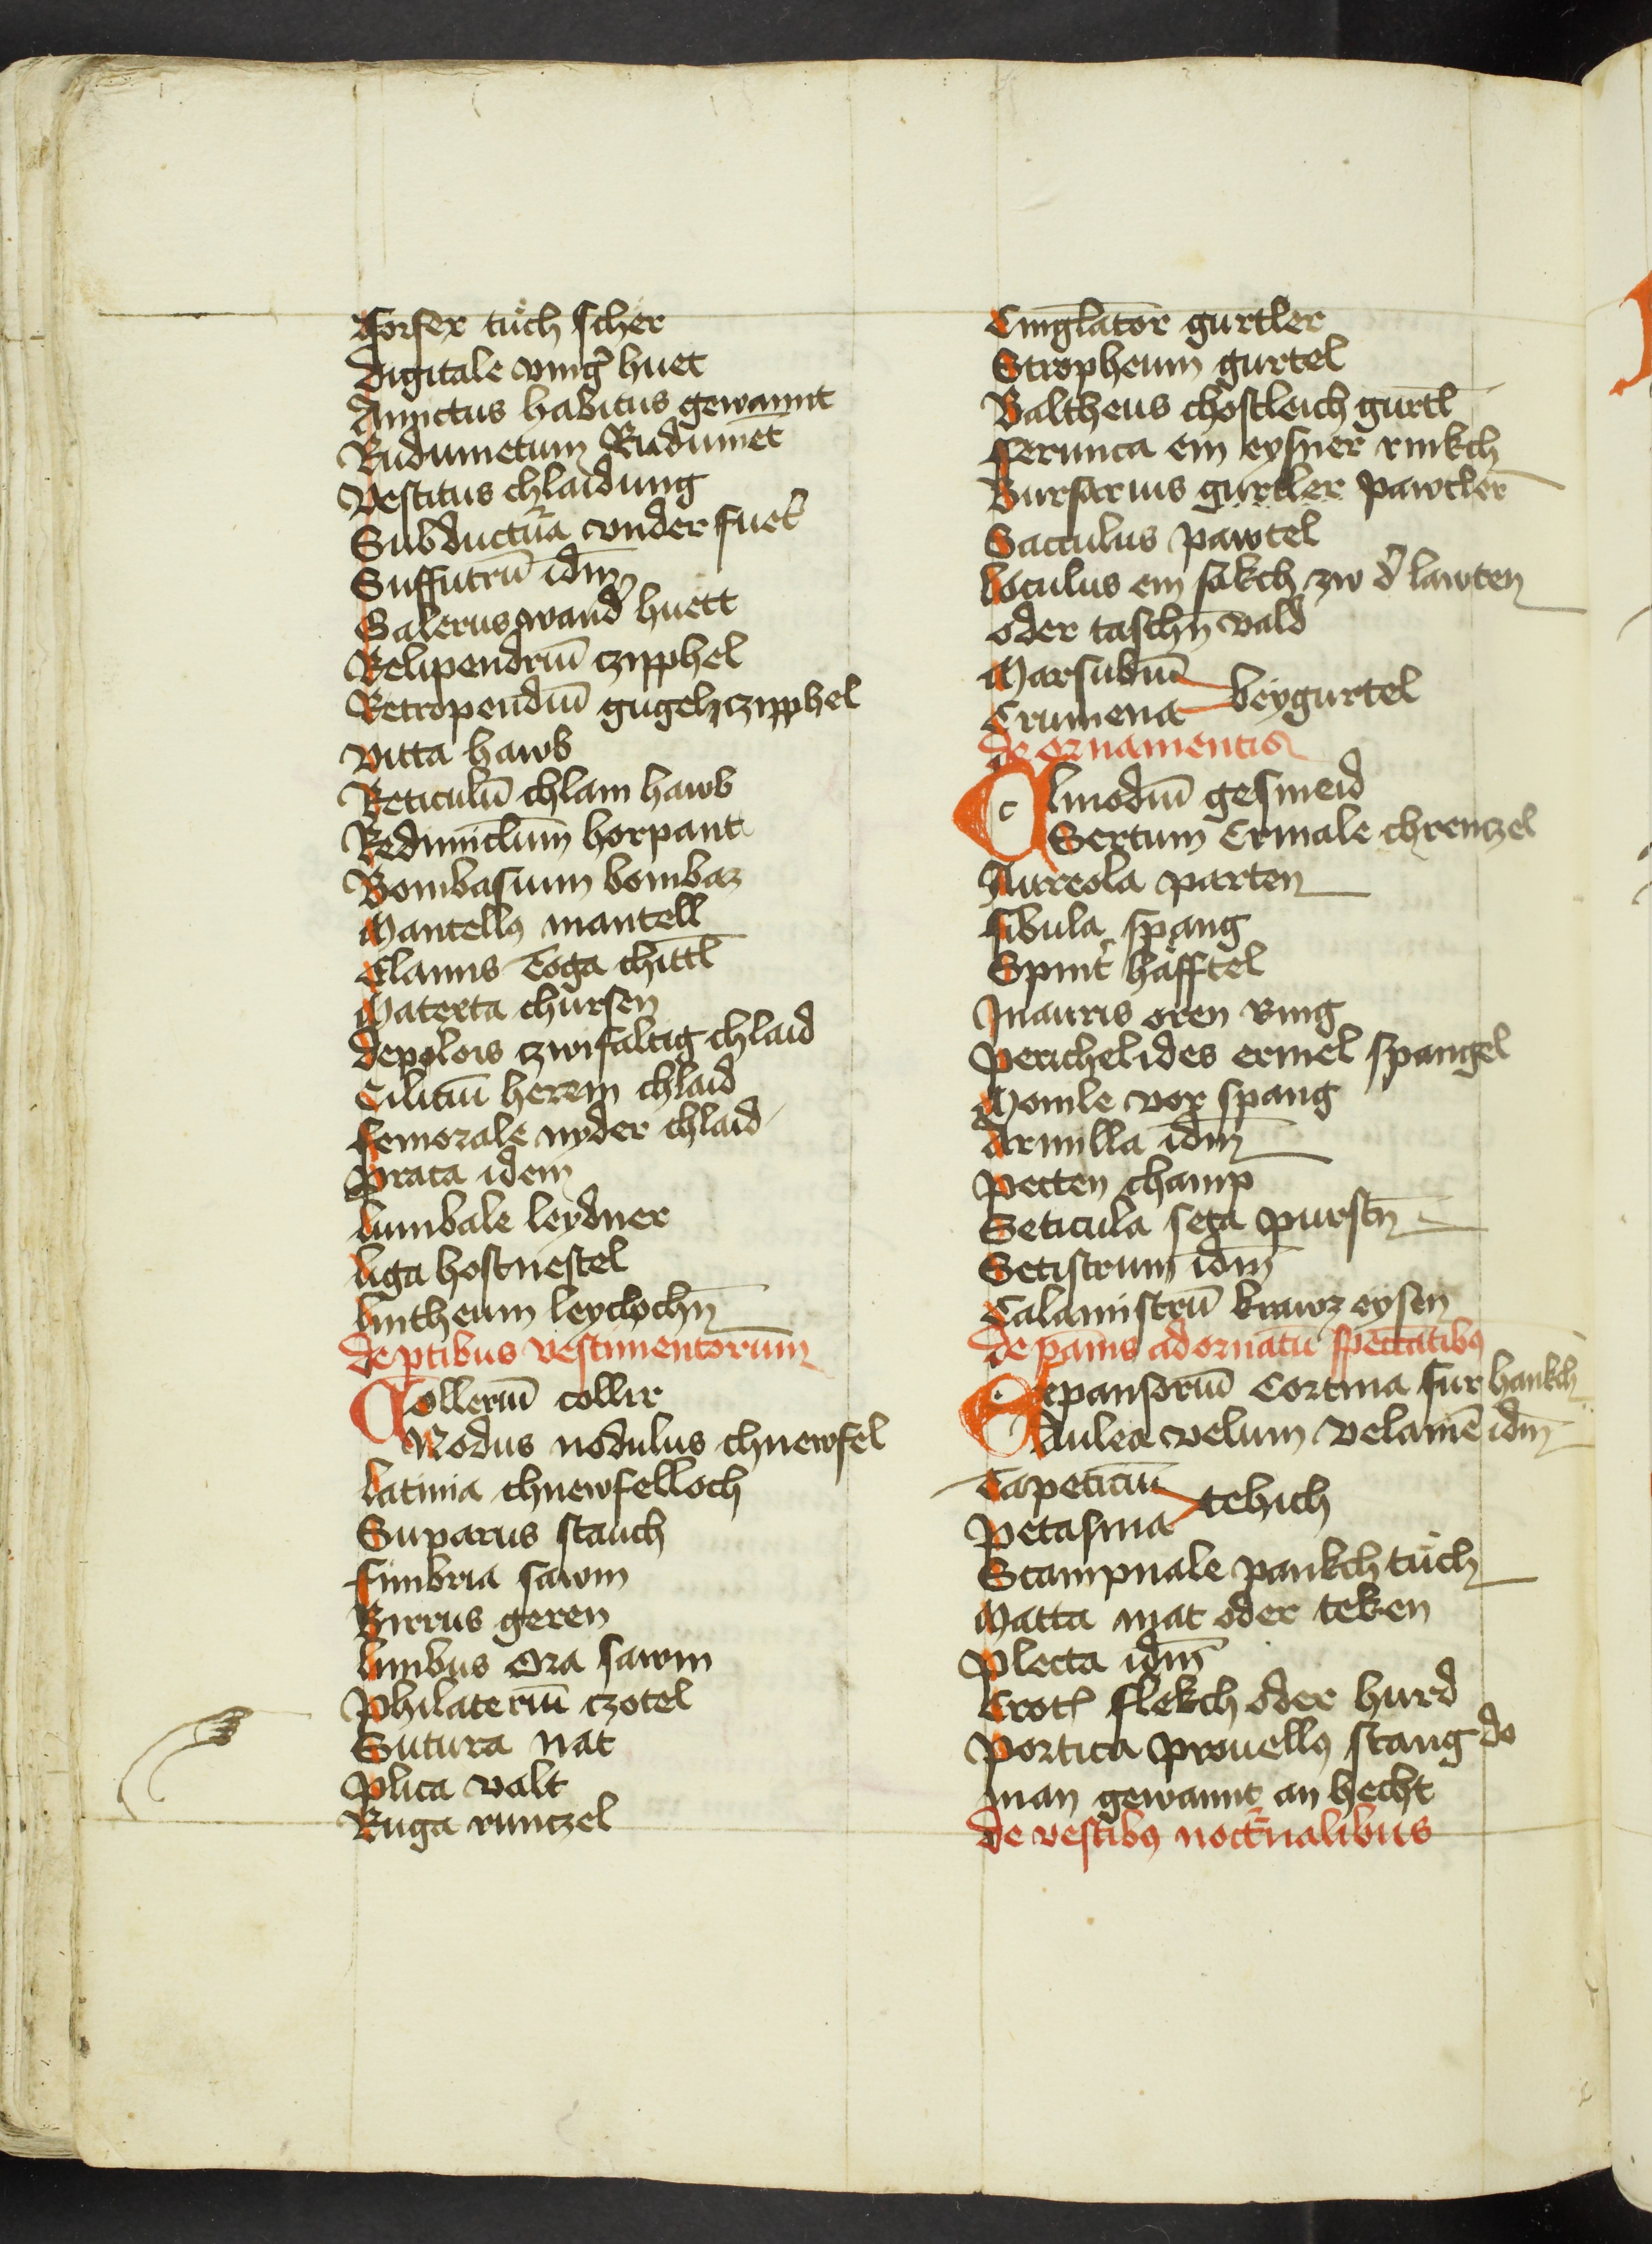 Forfex tuͤch scher
Digitale vinḡ huet
Amictus habitus gewannt
Indumetum Indumēt
Vestitus chlaidung
Subductura vnder fuet̄
Suffutrū idm̄
Galerus wand̄ huett
Relipendriū czipphel
Retropendiū gugelczipphel
Vitta hawb
Reticulū chlain hawb
Redimiclum horpant
Bombasium bombaz
Mantellꝰ mantell
Clamis Toga chittl̄
Materta chursen
Deplois zwifaltig chlaid
Ciliciū herein chlaid
Femorale nyder chlaid
Praca idem
Lumbale leydner
Liga hosnestel
Lintheum leylochn̄
De ꝑtibus vestimentorum
Colleriū collir
Nodus nodulus chnewfel
Latinia chnewfelloch
Suparus stauch
Fimbria sawm
Birrus geren
Limbus Ora sawm
Philateriū czotel
Sutura nat
Plica valt
Ruga runczel
Cinglator gurtler
Stropheum gurtel
Baltheus chostleich gurtl̄
Ferunca ein eysner rinkch
Bursarius gurtler pawtler
Sacculus pawtel
Loculus ein sakch zw d̄ lawten
oder taschn̄ vald
Marsubiū
Crumena beygurtel
De ornamentis
Clinodiū gesmeid
Sertum Crinale chrenczel
Aureola parten
Fibula spang
Spint̄ häfftel
Inauris oren ring
Perichelides ermel spangel
Monile vor spang
Armilla idm̄
Pecten champ
Seticula seta purstn̄
Setistrum idm̄
Calamistrū krawz eysen
De pannis ad ornatū spectātibꝰ
Depansoriū Cortina fur hankch
Aulea velum velamē idm̄
Tapeticiū
Petasma tebich
Scampnale pankch tuͤch
Matta mat oder teken
Plecta idm̄
flekch oder hurd
Portica prouellꝰ stang do
man gewannt an hecht
De vestibꝰ nocturnalibus